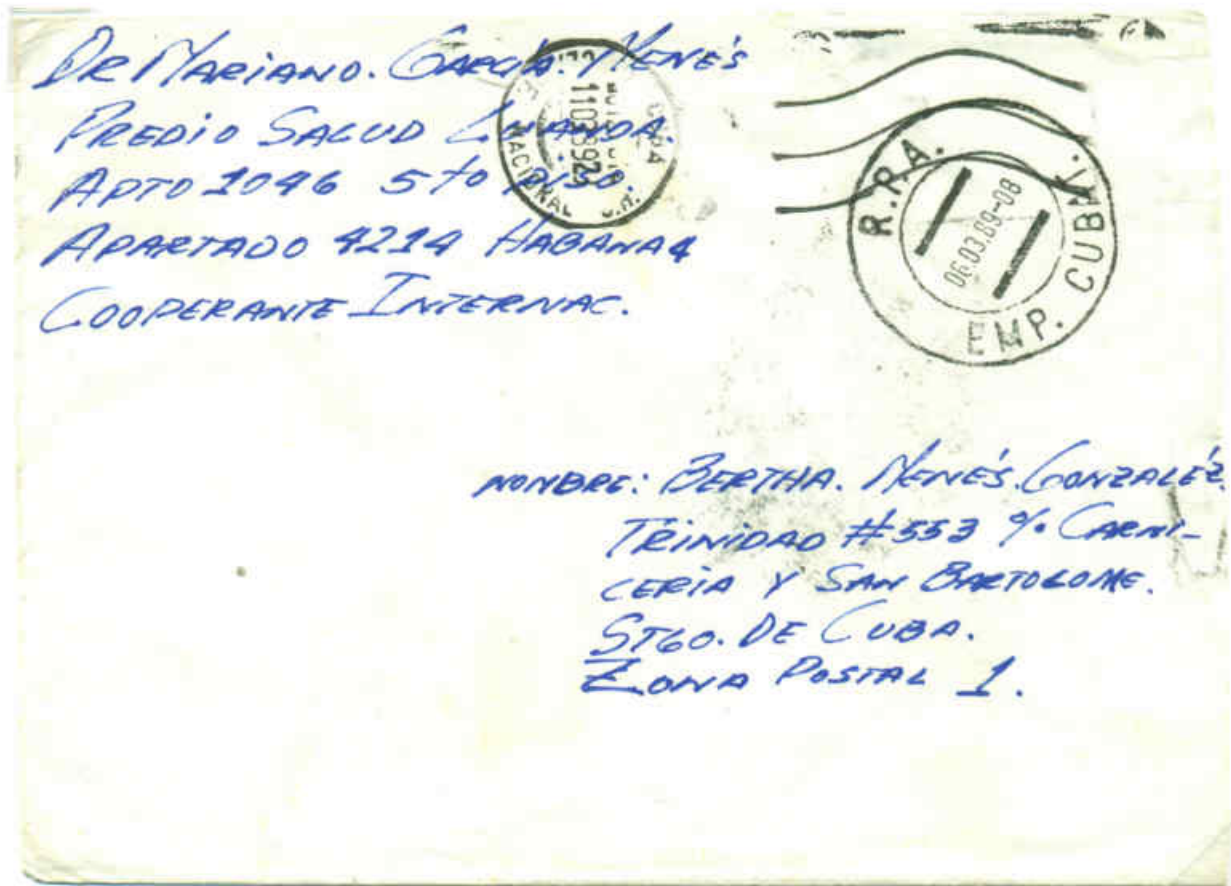 DR MARIANO. GARCÍA. Y MENÉS
PREDIO SALUD LUANDA.
APTO 1046 5to PISO.
APARTADO 4214 HABANA 4
COOPERANTE INTERNAC.
CUBA
110389 2
NACIONAL
R.R.A.
06.03.89-08
EMP. CUBA
NOMBRE: BERTHA. MENÉS. GONZALÉZ
TRINIDAD #553 %. CARNI-
CERIA Y SAN BARTOLOME.
STGO. DE CUBA.
ZONA POSTAL 1.